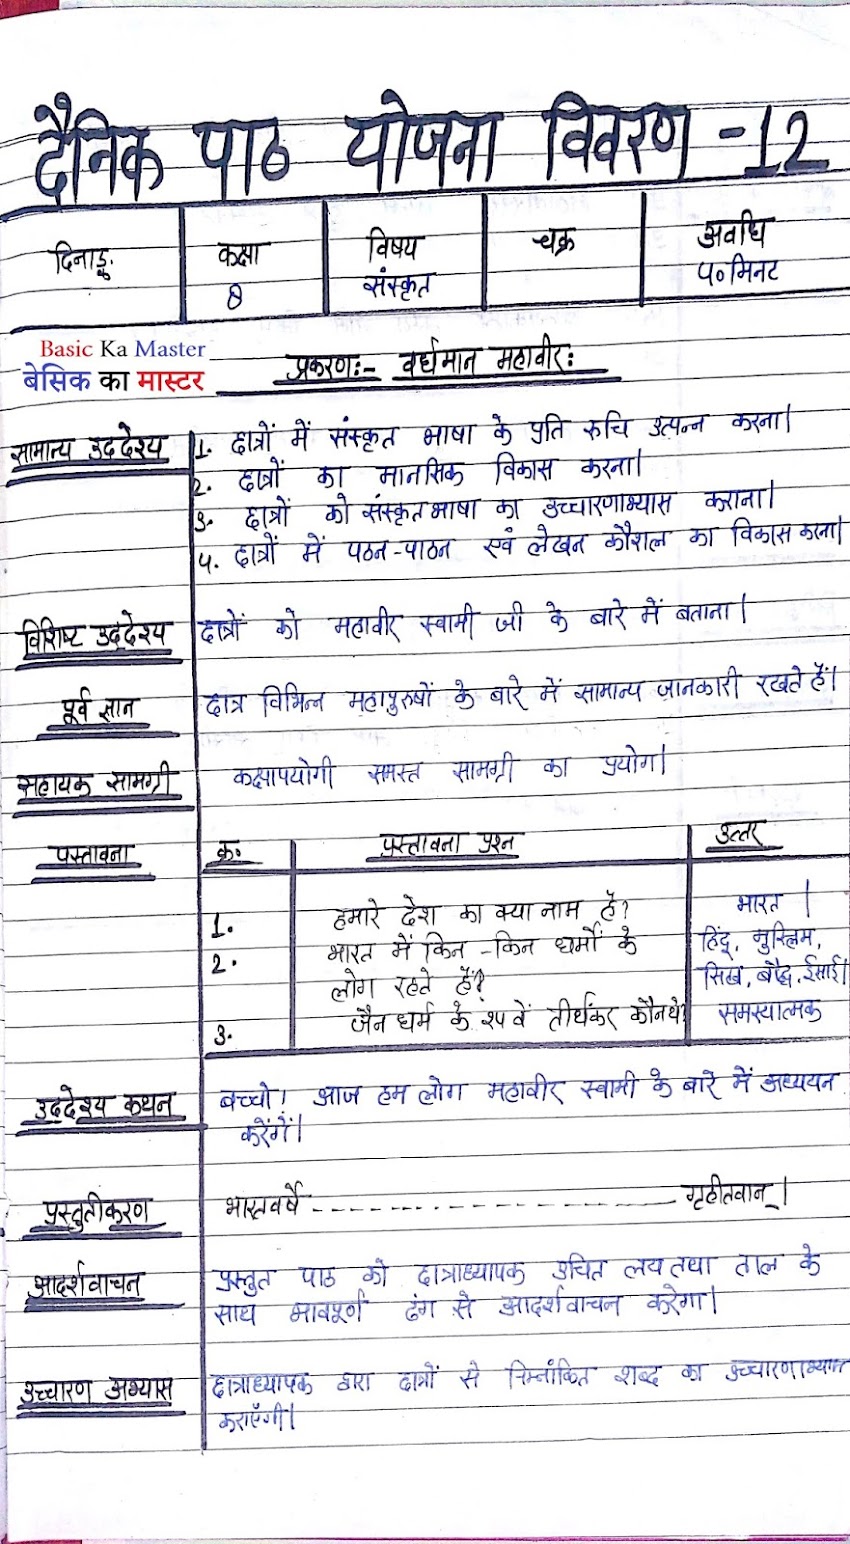 दैनिक पाठ योजना विवरण - 12
दिनाङ्क कक्षा विषय चक्र अवधि
8 संस्कृत ४० मिनट
Basic Ka Master
बेसिक का मास्टर
प्रकरणः- वर्धमान महावीरः
सामान्य उद्देश्य 1. छात्रों में संस्कृत भाषा के प्रति रुचि उत्पन्न करना।
2. छात्रों का मानसिक विकास करना।
3. छात्रों को संस्कृत भाषा का उच्चारणाभ्यास कराना।
४. छात्रों में पठन-पाठन एवं लेखन कौशल का विकास करना।
विशिष्ट उद्देश्य छात्रों को महावीर स्वामी जी के बारे में बताना।
पूर्व ज्ञान छात्र विभिन्न महापुरुषों के बारे में सामान्य जानकारी रखते हैं।
सहायक सामग्री कक्षापयोगी समस्त सामग्री का प्रयोग।
पस्तावना क्र. प्रस्तावना प्रश्न उत्तर
1. हमारे देश का क्या नाम है? भारत।
2. भारत में किन-किन धर्मों के हिंदू, मुस्लिम,
लोग रहते हैं? सिख, बौद्ध, ईसाई।
3. जैन धर्म के २४ वें तीर्थंकर कौन थे? समस्यात्मक
उद्देश्य कथन बच्चो! आज हम लोग महावीर स्वामी के बारे में अध्ययन
करेंगें।
प्रस्तुतीकरण भारतवर्षे ------------------- गृहीतवान्।
आदर्शवाचन प्रस्तुत पाठ को छात्राध्यापक उचित लय तथा ताल के
साथ भावपूर्ण ढंग से आदर्शवाचन करेगा।
उच्चारण अभ्यास छात्राध्यापक द्वारा छात्रों से निम्नांकित शब्द का उच्चारणाभ्यास
कराएँगी।